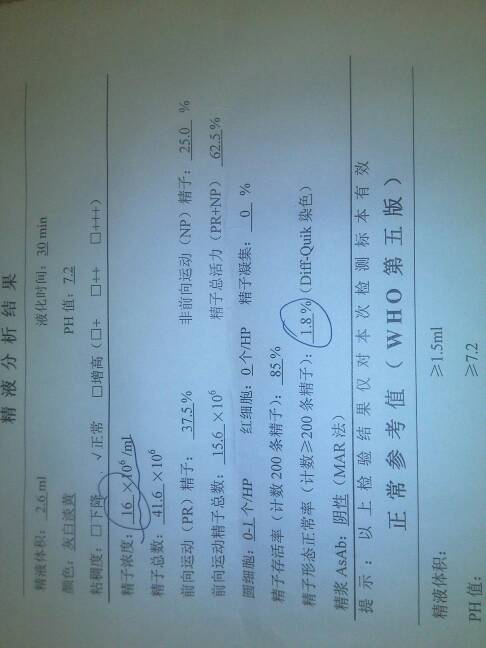 精液分析结果
精液体积：2.6 ml 液化时间：30 min
颜色：灰白淡黄 PH 值：7.2
粘稠度：□下降 √正常 □增高（□+ □++ □+++）
精子浓度：16 ×10⁶/ml
精子总数：41.6 ×10⁶
前向运动（PR）精子：37.5 % 非前向运动（NP）精子：25.0 %
前向运动精子总数：15.6 ×10⁶ 精子总活力（PR+NP）62.5 %
圆细胞：0-1 个/HP 红细胞：0 个/HP 精子凝集：0 %
精子存活率（计数 200 条精子）：85 %
精子形态正常率（计数≥200 条精子）：1.8 %（Diff-Quik 染色）
精浆 AsAb：阴性（MAR 法）
提示：以上检验结果仅对本次检测标本有效
正常参考值（WHO 第五版）
精液体积： ≥1.5ml
PH 值： ≥7.2